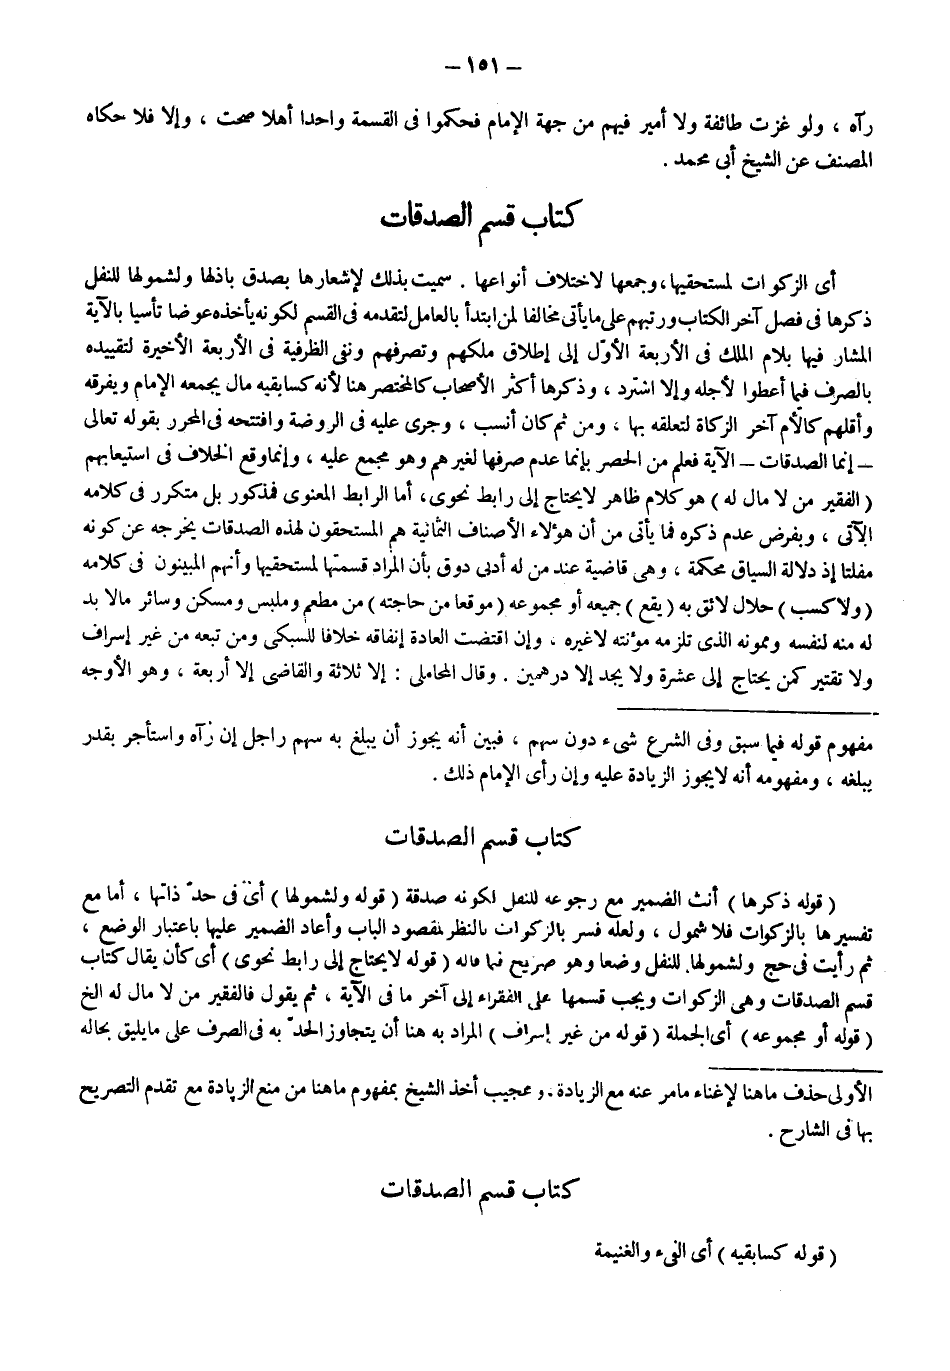 – ١٥١ –
رآه ، ولو غزت طائفة ولا أمير فيهم من جهة الإمام فحكموا فى القسمة واحدا أهلا صحت ، وإلا فلا حكاه
المصنف عن الشيخ أبى محمد .
كتاب قسم الصدقات
أى الزكوات لمستحقيها، وجمعها لاختلاف أنواعها . سميت بذلك لإشعارها بصدق باذلها ولشمولها للنفل
ذكرها فى فصل آخر الكتاب ورتبهم على مايأتى مخالفا لمن ابتدأ بالعامل لتقدمه فى القسم لكونه يأخذه عوضا تأسيا بالآية
المشار فيها بلام الملك فى الأربعة الأول إلى إطلاق ملكهم وتصرفهم وبفى الظرفية فى الأربعة الأخيرة لتقييده
بالصرف فيما أعطوا لأجله وإلا استرد ، وذكرها أكثر الأصحاب كالمختصر هنا لأنه كسابقيه مال يجمعه الإمام ويفرقه
وأقلهم كالأم آخر الزكاة لتعلقه بها ، ومن ثم كان أنسب ، وجرى عليه فى الروضة وافتتحه فى المحرر بقوله تعالى
– إنما الصدقات – الآية فعلم من الحصر بإنما عدم صرفها لغيرهم وهو مجمع عليه ، وإنما وقع الخلاف فى استيعابهم
( الفقير من لا مال له ) هو كلام ظاهر لايحتاج إلى رابط نحوى، أما الرابط المعنوى فمذكور بل متكرر فى كلامه
الآتى ، وبفرض عدم ذكره فما يأتى من أن هؤلاء الأصناف الثمانية هم المستحقون لهذه الصدقات يخرجه عن كونه
مفلتا إذ دلالة السياق محكمة ، وهى قاضية عند من له أدنى ذوق بأن المراد قسمتها لمستحقيها وأنهم المبينون فى كلامه
( ولا كسب ) حلال لائق به ( يقع ) جميعه أو مجموعه ( موقعا من حاجته ) من مطعم وملبس ومسكن وسائر مالا بد
له منه لنفسه وممونه الذى تلزمه مؤنته لاغيره ، وإن اقتضت العادة إنفاقه خلافا للسبكى ومن تبعه من غير إسراف
ولا تقتير كمن يحتاج إلى عشرة ولا يجد إلا درهمين . وقال المحاملى : إلا ثلاثة والقاضى إلا أربعة ، وهو الأوجه
مفهوم قوله فيما سبق وفى الشرع شىء دون سهم ، فبين أنه يجوز أن يبلغ به سهم راجل إن رآه واستأجر بقدر
يبلغه ، ومفهومه أنه لايجوز الزيادة عليه وإن رأى الإمام ذلك .
كتاب قسم الصدقات
( قوله ذكرها ) أنث الضمير مع رجوعه للنفل لكونه صدقة ( قوله ولشمولها ) أى فى حدّ ذاتها ، أما مع
تفسيرها بالزكوات فلا شمول ، ولعله فسر بالزكوات بالنظر لمقصود الباب وأعاد الضمير عليها باعتبار الوضع ،
ثم رأيت فى حج ولشمولها للنفل وضعا وهو صريح فيما قاله ( قوله لايحتاج إلى رابط نحوى ) أى كأن يقال كتاب
قسم الصدقات وهى الزكوات ويجب قسمها على الفقراء إلى آخر ما فى الآية ، ثم يقول فالفقير من لا مال له الخ
( قوله أو مجموعه ) أى الجملة ( قوله من غير إسراف ) المراد به هنا أن يتجاوز الحدّ به فى الصرف على مايليق بحاله
الأولى حذف ماهنا لإغناء مامر عنه مع الزيادة . وعجيب أخذ الشيخ بمفهوم ماهنا من منع الزيادة مع تقدم التصريح
بها فى الشارح .
كتاب قسم الصدقات
( قوله كسابقيه ) أى الفىء والغنيمة